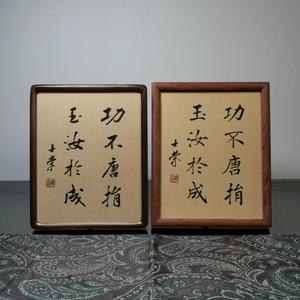 功不唐捐
玉汝於成
士榮
功不唐捐
玉汝於成
士榮